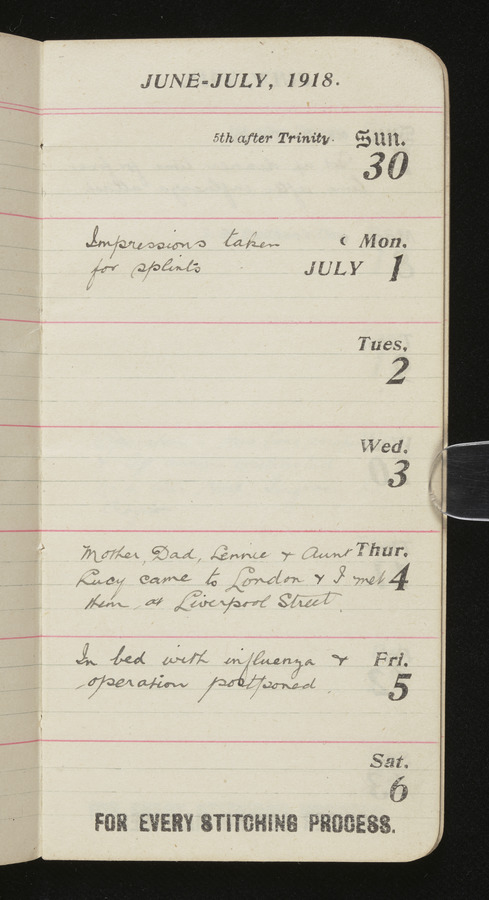 JUNE-JULY, 1918.
5th after Trinity. Sun.
30
Impressions taken ☾ Mon.
for splints JULY 1
Tues.
2
Wed.
3
Mother, Dad, Lennie + Aunt Thur.
Lucy came to London + I met 4
them at Liverpool Street.
In bed with influenza + Fri.
operation postponed. 5
Sat.
6
FOR EVERY STITCHING PROCESS.